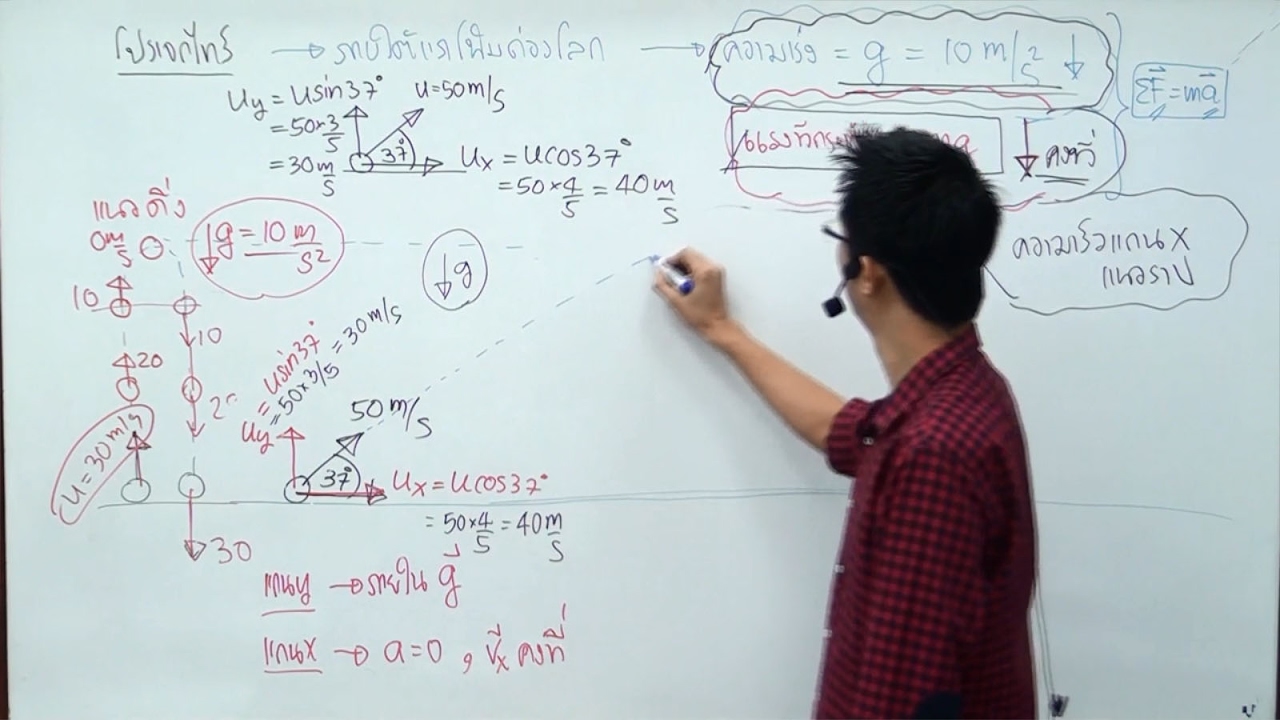 โปรเจกไทร์ → ภายใต้แรงโน้มถ่วงโลก → ความเร่ง = g = 10 m/s² ↓
ΣF = ma
uy = usin37°
= 50×3/5
= 30 m/s
u = 50 m/s
37°
ux = ucos37°
= 50×4/5 = 40 m/s
คงที่
ความเร็วแกน x
แนวราบ
แนวดิ่ง
0 m/s
↓g = 10 m/s²
↓g
10
10
20
u = 30 m/s
30
uy = usin37°
= 50×3/5 = 30 m/s
50 m/s
37°
ux = ucos37°
= 50×4/5 = 40 m/s
แกนy → ภายใน g
แกนx → a=0 , vx คงที่